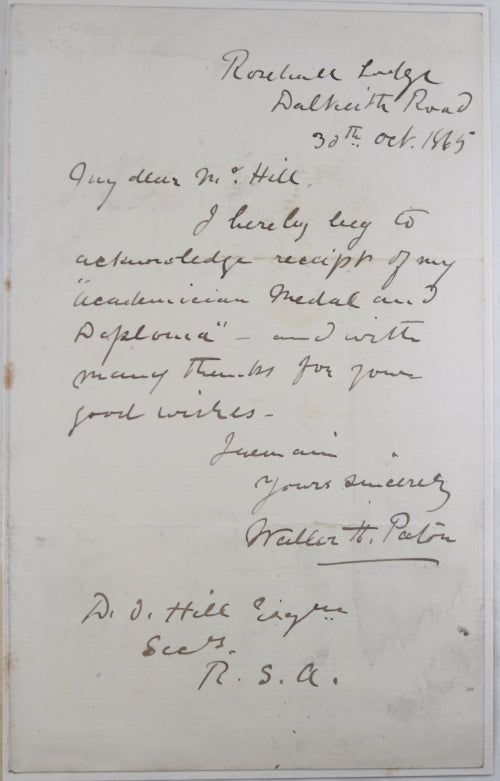 Rosehall Lodge
Dalkeith Road
30th. Oct. 1865
My dear Mr. Hill,
I hereby beg to
acknowledge receipt of my
"Academician Medal and
Diploma" – and with
many thanks for your
good wishes –
I remain
Yours sincerely
Waller H. Paton
D. O. Hill Esqre
Secy.
R. S. A.